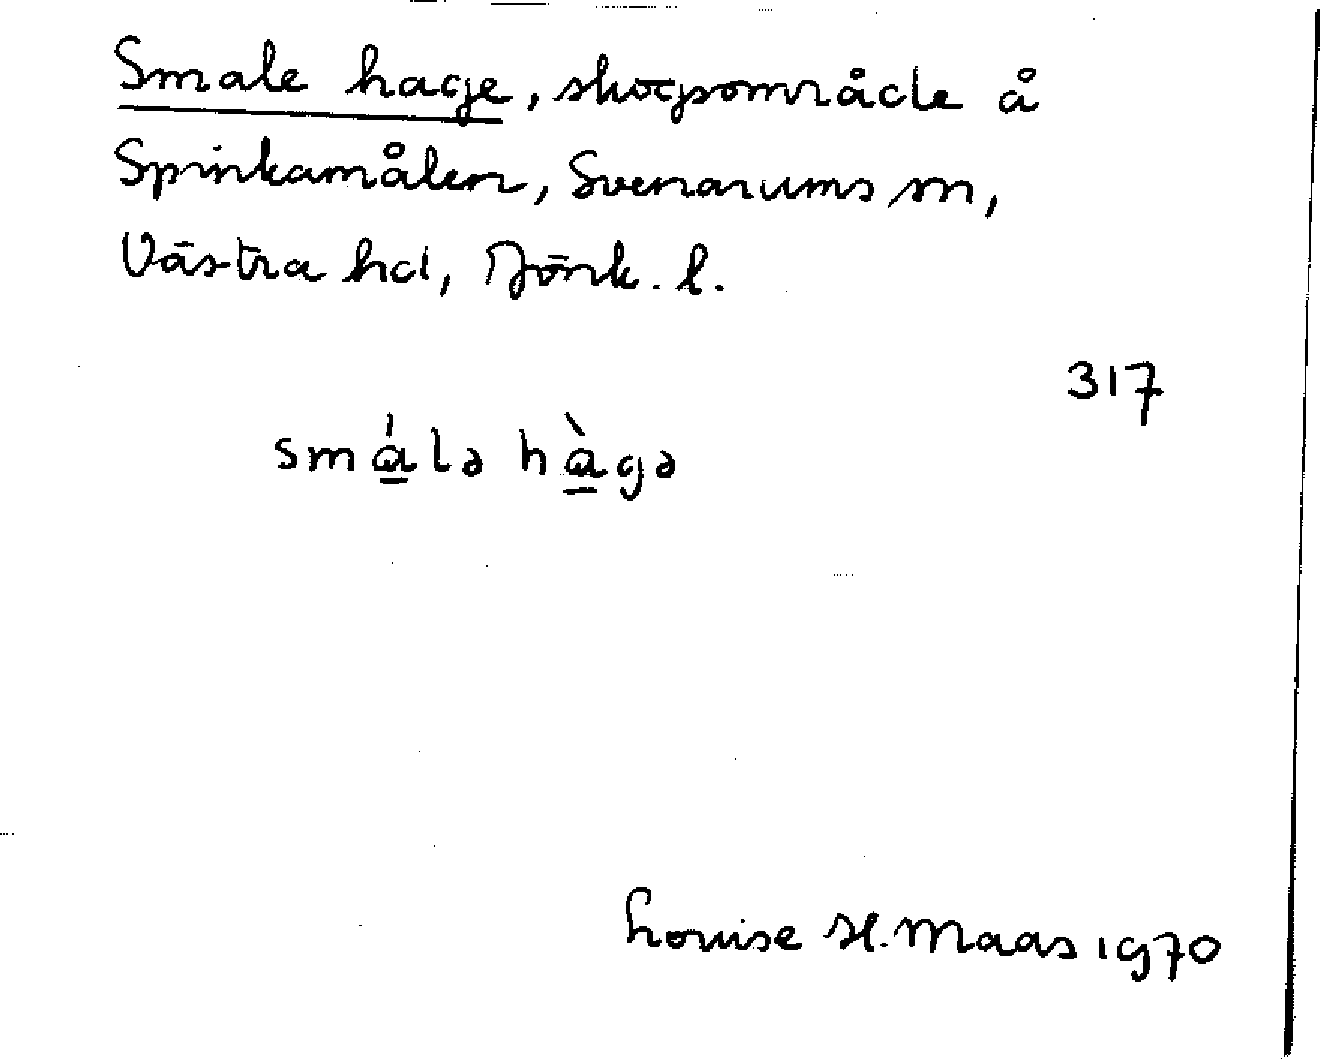 Smale hage, skogsområde å
Spinkamålen, Svenarums sn,
Västra hd, Jönk. l.
317
smálə hàgə
Louise H. Maas 1970